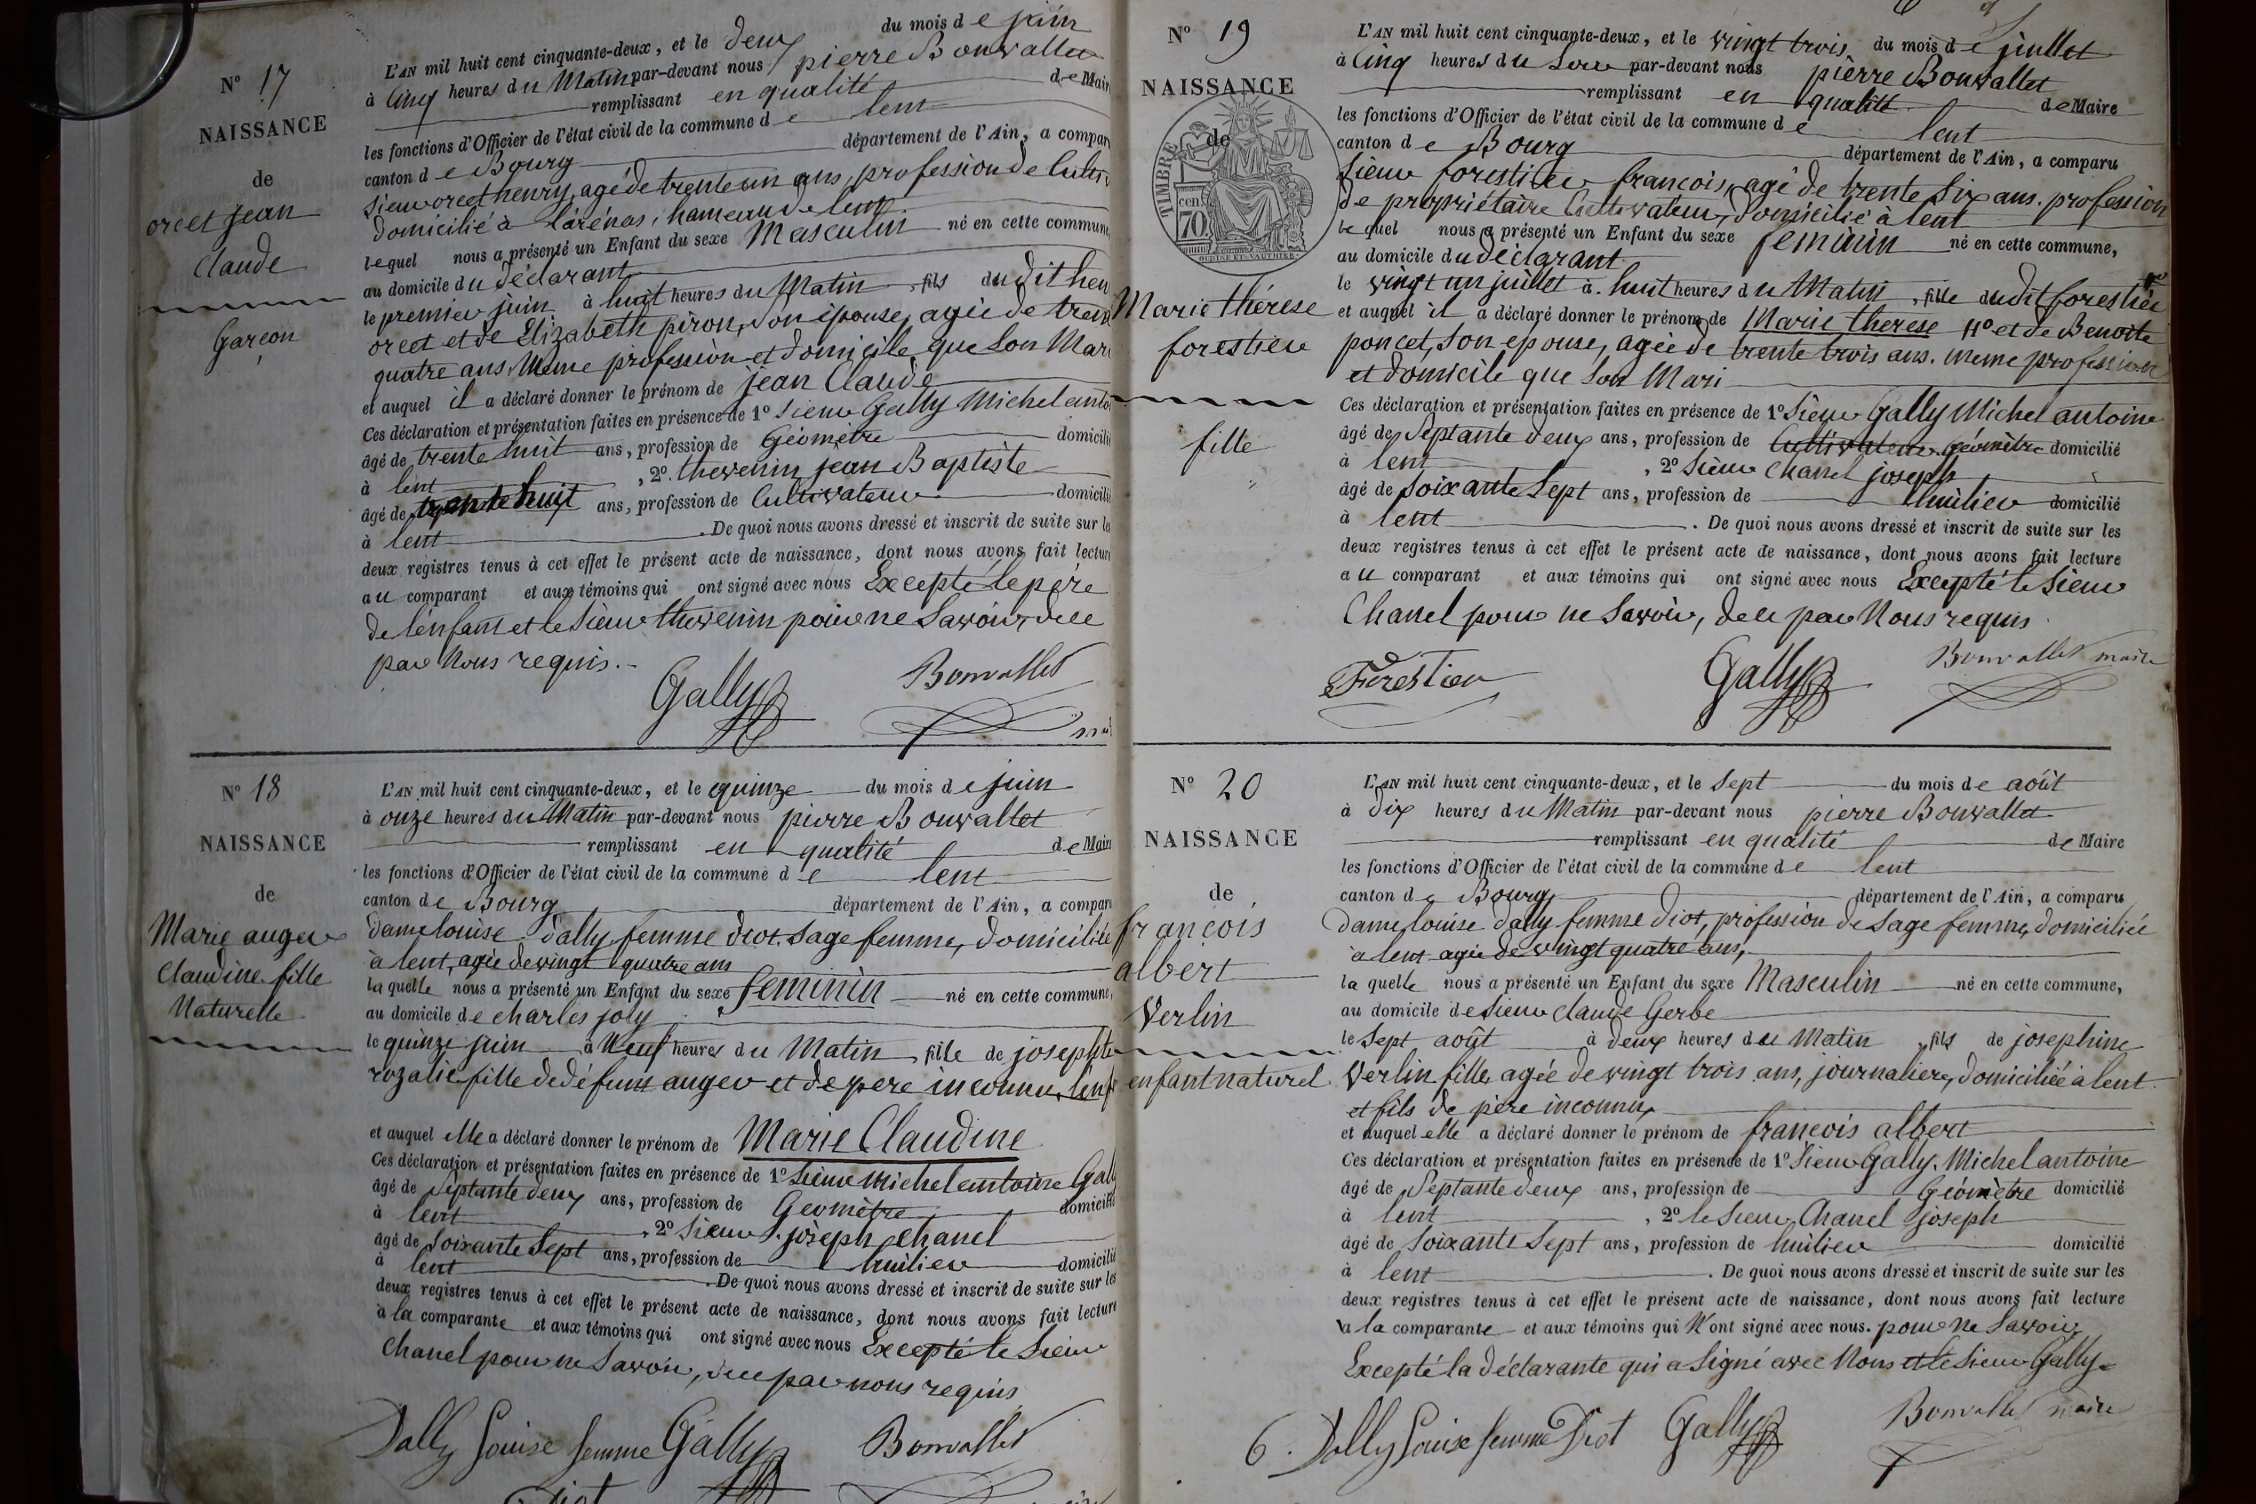 N° 17
NAISSANCE
de
orcet jean
Claude
Garçon
L'AN mil huit cent cinquante-deux, et le deux du mois de juin
à Cinq heures du Matin par-devant nous pierre Bonvallet
remplissant en qualité de Mair
les fonctions d'Officier de l'état civil de la commune de lent
canton de Bourg département de l'Ain, a compar
Sieur orcet henry, agé de trente un ans, profession de Cultiv
domicilié à Larénas, hameau de lent
lequel nous a présenté un Enfant du sexe Masculin né en cette commune,
au domicile du déclarant
le premier juin à huit heures du Matin, fils dudit hen
orcet et de Elizabeth piron, Son épouse, agée de trent
quatre ans, Meme profession et domicile que Son Mari
et auquel il a déclaré donner le prénom de jean Claude
Ces déclaration et présentation faites en présence de 1° Sieur Gally Michel anto
âgé de trente huit ans, profession de Géomètre domicilié
à lent, 2° thevenin jean Baptiste
âgé de trente huit ans, profession de Cultivateur domicilié
à lent. De quoi nous avons dressé et inscrit de suite sur les
deux registres tenus à cet effet le présent acte de naissance, dont nous avons fait lecture
au comparant et aux témoins qui ont signé avec nous Excepté le père
de l'enfant et le Sieur thevenin pour ne Savoir, de ce
par Nous requis.
Gally Bonvallet
N° 18
NAISSANCE
de
Marie auger
Claudine fille
Naturelle
L'AN mil huit cent cinquante-deux, et le quinze du mois de juin
à onze heures du Matin par-devant nous pierre Bonvallet
remplissant en qualité de Mair
les fonctions d'Officier de l'état civil de la commune de lent
canton de Bourg département de l'Ain, a compar
Dame louise dally femme diot, Sage femme, domiciliée
à lent, agée de vingt quatre ans
laquelle nous a présenté un Enfant du sexe feminin né en cette commune,
au domicile de charles joly
le quinze juin à Neuf heures du Matin, fille de josephte
rozalie fille de défunt auger et de pere inconnu, l'enf
et auquel elle a déclaré donner le prénom de Marie Claudine
Ces déclaration et présentation faites en présence de 1° Sieur Michel antoine Gall
âgé de Septante deux ans, profession de Geomètre domicilié
à lent, 2° Sieur joseph chanel
âgé de Soixante Sept ans, profession de huilier domicilié
à lent. De quoi nous avons dressé et inscrit de suite sur les
deux registres tenus à cet effet le présent acte de naissance, dont nous avons fait lecture
à la comparante et aux témoins qui ont signé avec nous Excepté le Sieur
Chanel pour ne Savoir, de ce par nous requis
Dally Louise femme Gally Bonvallet
Diot
N° 19
NAISSANCE
de
TIMBRE
cent.
70
Marie thérese
forestier
fille
L'AN mil huit cent cinquante-deux, et le vingt trois du mois de juillet
à Cinq heures du Soir par-devant nous pièrre Bonvallet
remplissant en qualité de Maire
les fonctions d'Officier de l'état civil de la commune de lent
canton de Bourg département de l'Ain, a comparu
Sieur forestier francois, agé de trente Six ans. profession
de propriétaire Cultivateur, domicilié à lent
lequel nous a présenté un Enfant du sexe feminin né en cette commune,
au domicile du déclarant
le vingt un juillet à huit heures du Matin, fille dudit forestier
et auquel il a déclaré donner le prénom de Marie therese et de Benoite
poncet, son epouse, agée de trente trois ans. meme profession
et domicile que Son Mari
Ces déclaration et présentation faites en présence de 1° Sieur Gally Michel antoine
âgé de Septante deux ans, profession de Cultivateur Géomètre domicilié
à lent, 2° Sieur Chanel joseph
âgé de Soixante Sept ans, profession de huilier domicilié
à lent. De quoi nous avons dressé et inscrit de suite sur les
deux registres tenus à cet effet le présent acte de naissance, dont nous avons fait lecture
au comparant et aux témoins qui ont signé avec nous Excepté le Sieur
Chanel pour ne Savoir, de ce par Nous requis
Forestier Gally Bonvallet maire
N° 20
NAISSANCE
de
francois
albert
Verlin
enfant naturel
L'AN mil huit cent cinquante-deux, et le Sept du mois de août
à dix heures du Matin par-devant nous pierre Bonvallet
remplissant en qualité de Maire
les fonctions d'Officier de l'état civil de la commune de lent
canton de Bourg département de l'Ain, a comparu
Dame louise dally femme diot, profession de Sage femme, domiciliée
à lent agée de vingt quatre ans,
laquelle nous a présenté un Enfant du sexe Masculin né en cette commune,
au domicile de Sieur Claude Gerbe
le Sept août à deux heures du Matin, fils de josephine
Verlin fille, agée de vingt trois ans, journaliere, domiciliée à lent
et fils de père inconnu
et auquel elle a déclaré donner le prénom de francois albert
Ces déclaration et présentation faites en présence de 1° Sieur Gally Michel antoine
âgé de Septante deux ans, profession de Géomètre domicilié
à lent, 2° le Sieur Chanel joseph
âgé de Soixante Sept ans, profession de huilier domicilié
à lent. De quoi nous avons dressé et inscrit de suite sur les
deux registres tenus à cet effet le présent acte de naissance, dont nous avons fait lecture
à la comparante et aux témoins qui N'ont signé avec nous. pour ne Savoir
Excepté la déclarante qui a Signé avec Nous et le Sieur Gally
6. Dally Louise femme Diot Gally Bonvallet maire